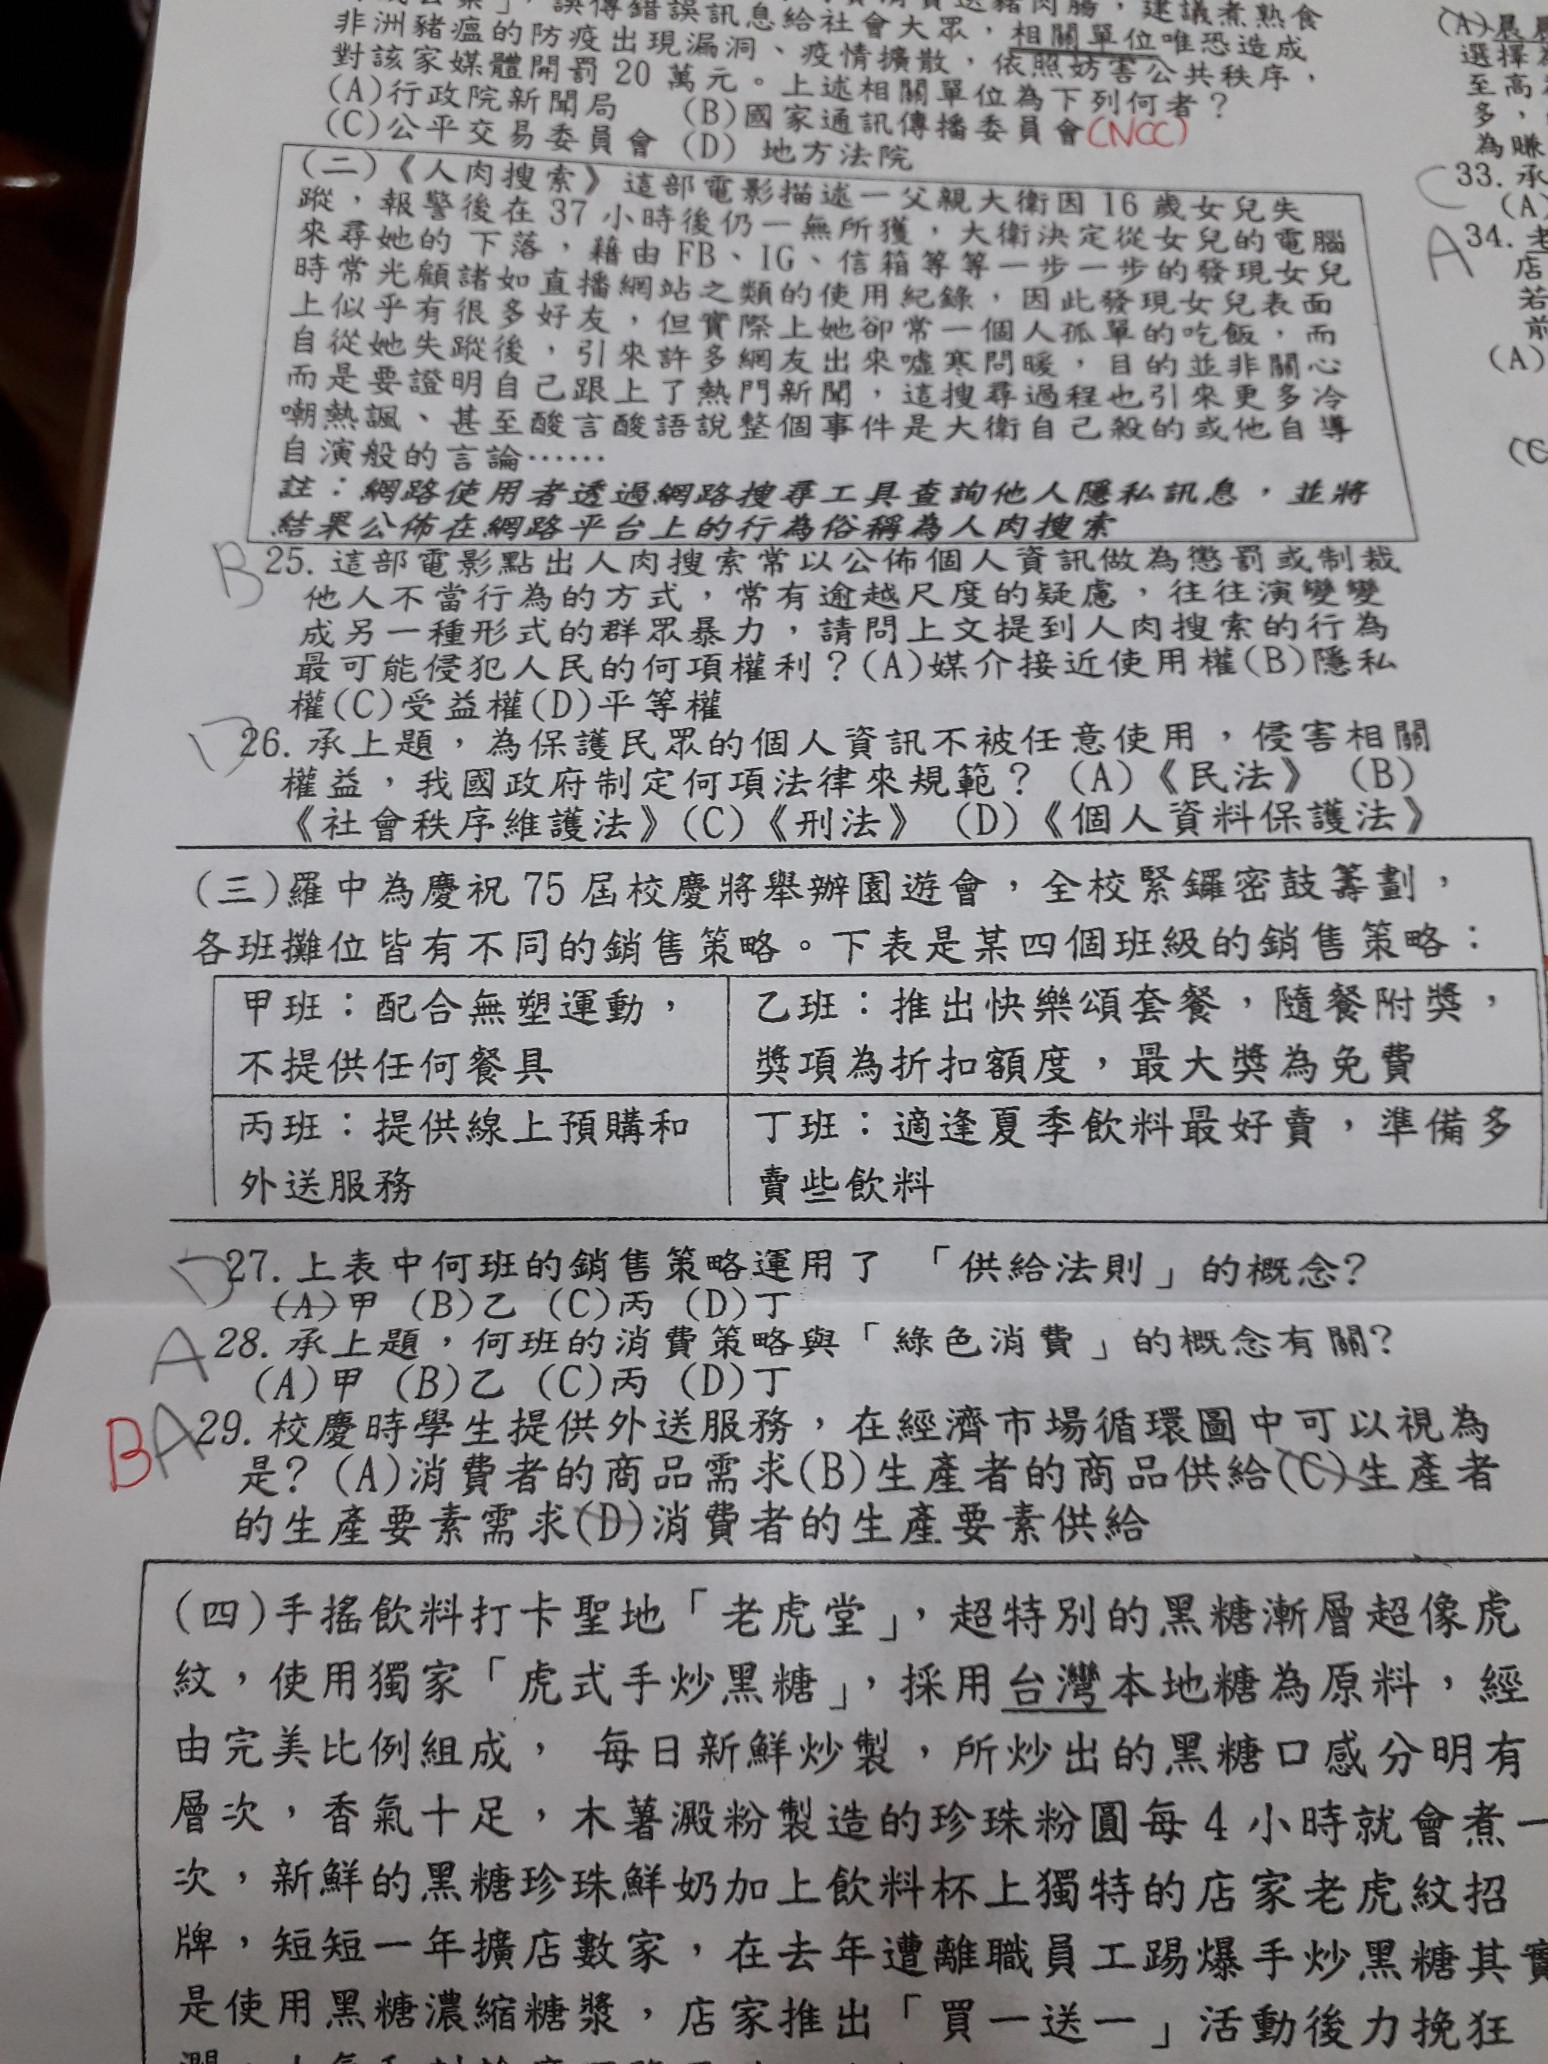 非洲豬瘟的防疫出現漏洞、疫情擴散,依照妨害公共秩序,
誤傳錯誤訊息給社會大眾,相關單位唯恐造成
對該家媒體開罰20萬元。上述相關單位為下列何者?
(A)行政院新聞局 (B)國家通訊傳播委員會(NCC)
(C)公平交易委員會 (D) 地方法院
(二)《人肉搜索》這部電影描述一父親大衛因16歲女兒失
蹤,報警後在37小時後仍一無所獲,大衛決定從女兒的電腦
來尋她的下落,藉由FB、IG、信箱等等一步一步的發現女兒
時常光顧諸如直播網站之類的使用紀錄,因此發現女兒表面
上似乎有很多好友,但實際上她卻常一個人孤單的吃飯,而
自從她失蹤後,引來許多網友出來噓寒問暖,目的並非關心
而是要證明自己跟上了熱門新聞,這搜尋過程也引來更多冷
嘲熱諷、甚至酸言酸語說整個事件是大衛自己殺的或他自導
自演般的言論……
註:網路使用者透過網路搜尋工具查詢他人隱私訊息,並將
結果公佈在網路平台上的行為俗稱為人肉搜索
B 25. 這部電影點出人肉搜索常以公佈個人資訊做為懲罰或制裁
他人不當行為的方式,常有逾越尺度的疑慮,往往演變變
成另一種形式的群眾暴力,請問上文提到人肉搜索的行為
最可能侵犯人民的何項權利?(A)媒介接近使用權(B)隱私
權(C)受益權(D)平等權
D 26. 承上題,為保護民眾的個人資訊不被任意使用,侵害相關
權益,我國政府制定何項法律來規範? (A)《民法》 (B)
《社會秩序維護法》(C)《刑法》 (D)《個人資料保護法》
(三)羅中為慶祝75屆校慶將舉辦園遊會,全校緊鑼密鼓籌劃,
各班攤位皆有不同的銷售策略。下表是某四個班級的銷售策略:
甲班:配合無塑運動,
不提供任何餐具
乙班:推出快樂頌套餐,隨餐附獎,
獎項為折扣額度,最大獎為免費
丙班:提供線上預購和
外送服務
丁班:適逢夏季飲料最好賣,準備多
賣些飲料
D 27. 上表中何班的銷售策略運用了 「供給法則」的概念?
(A)甲 (B)乙 (C)丙 (D)丁
A 28. 承上題,何班的消費策略與「綠色消費」的概念有關?
(A)甲 (B)乙 (C)丙 (D)丁
B A 29. 校慶時學生提供外送服務,在經濟市場循環圖中可以視為
是? (A)消費者的商品需求(B)生產者的商品供給(C)生產者
的生產要素需求(D)消費者的生產要素供給
(四)手搖飲料打卡聖地「老虎堂」,超特別的黑糖漸層超像虎
紋,使用獨家「虎式手炒黑糖」,採用台灣本地糖為原料,經
由完美比例組成, 每日新鮮炒製,所炒出的黑糖口感分明有
層次,香氣十足,木薯澱粉製造的珍珠粉圓每4小時就會煮一
次,新鮮的黑糖珍珠鮮奶加上飲料杯上獨特的店家老虎紋招
牌,短短一年擴店數家,在去年遭離職員工踢爆手炒黑糖其實
是使用黑糖濃縮糖漿,店家推出「買一送一」活動後力挽狂
選擇
至高
多,
為賺
C 33. 承
(A)
A 34. 老
店
若
前
(A)